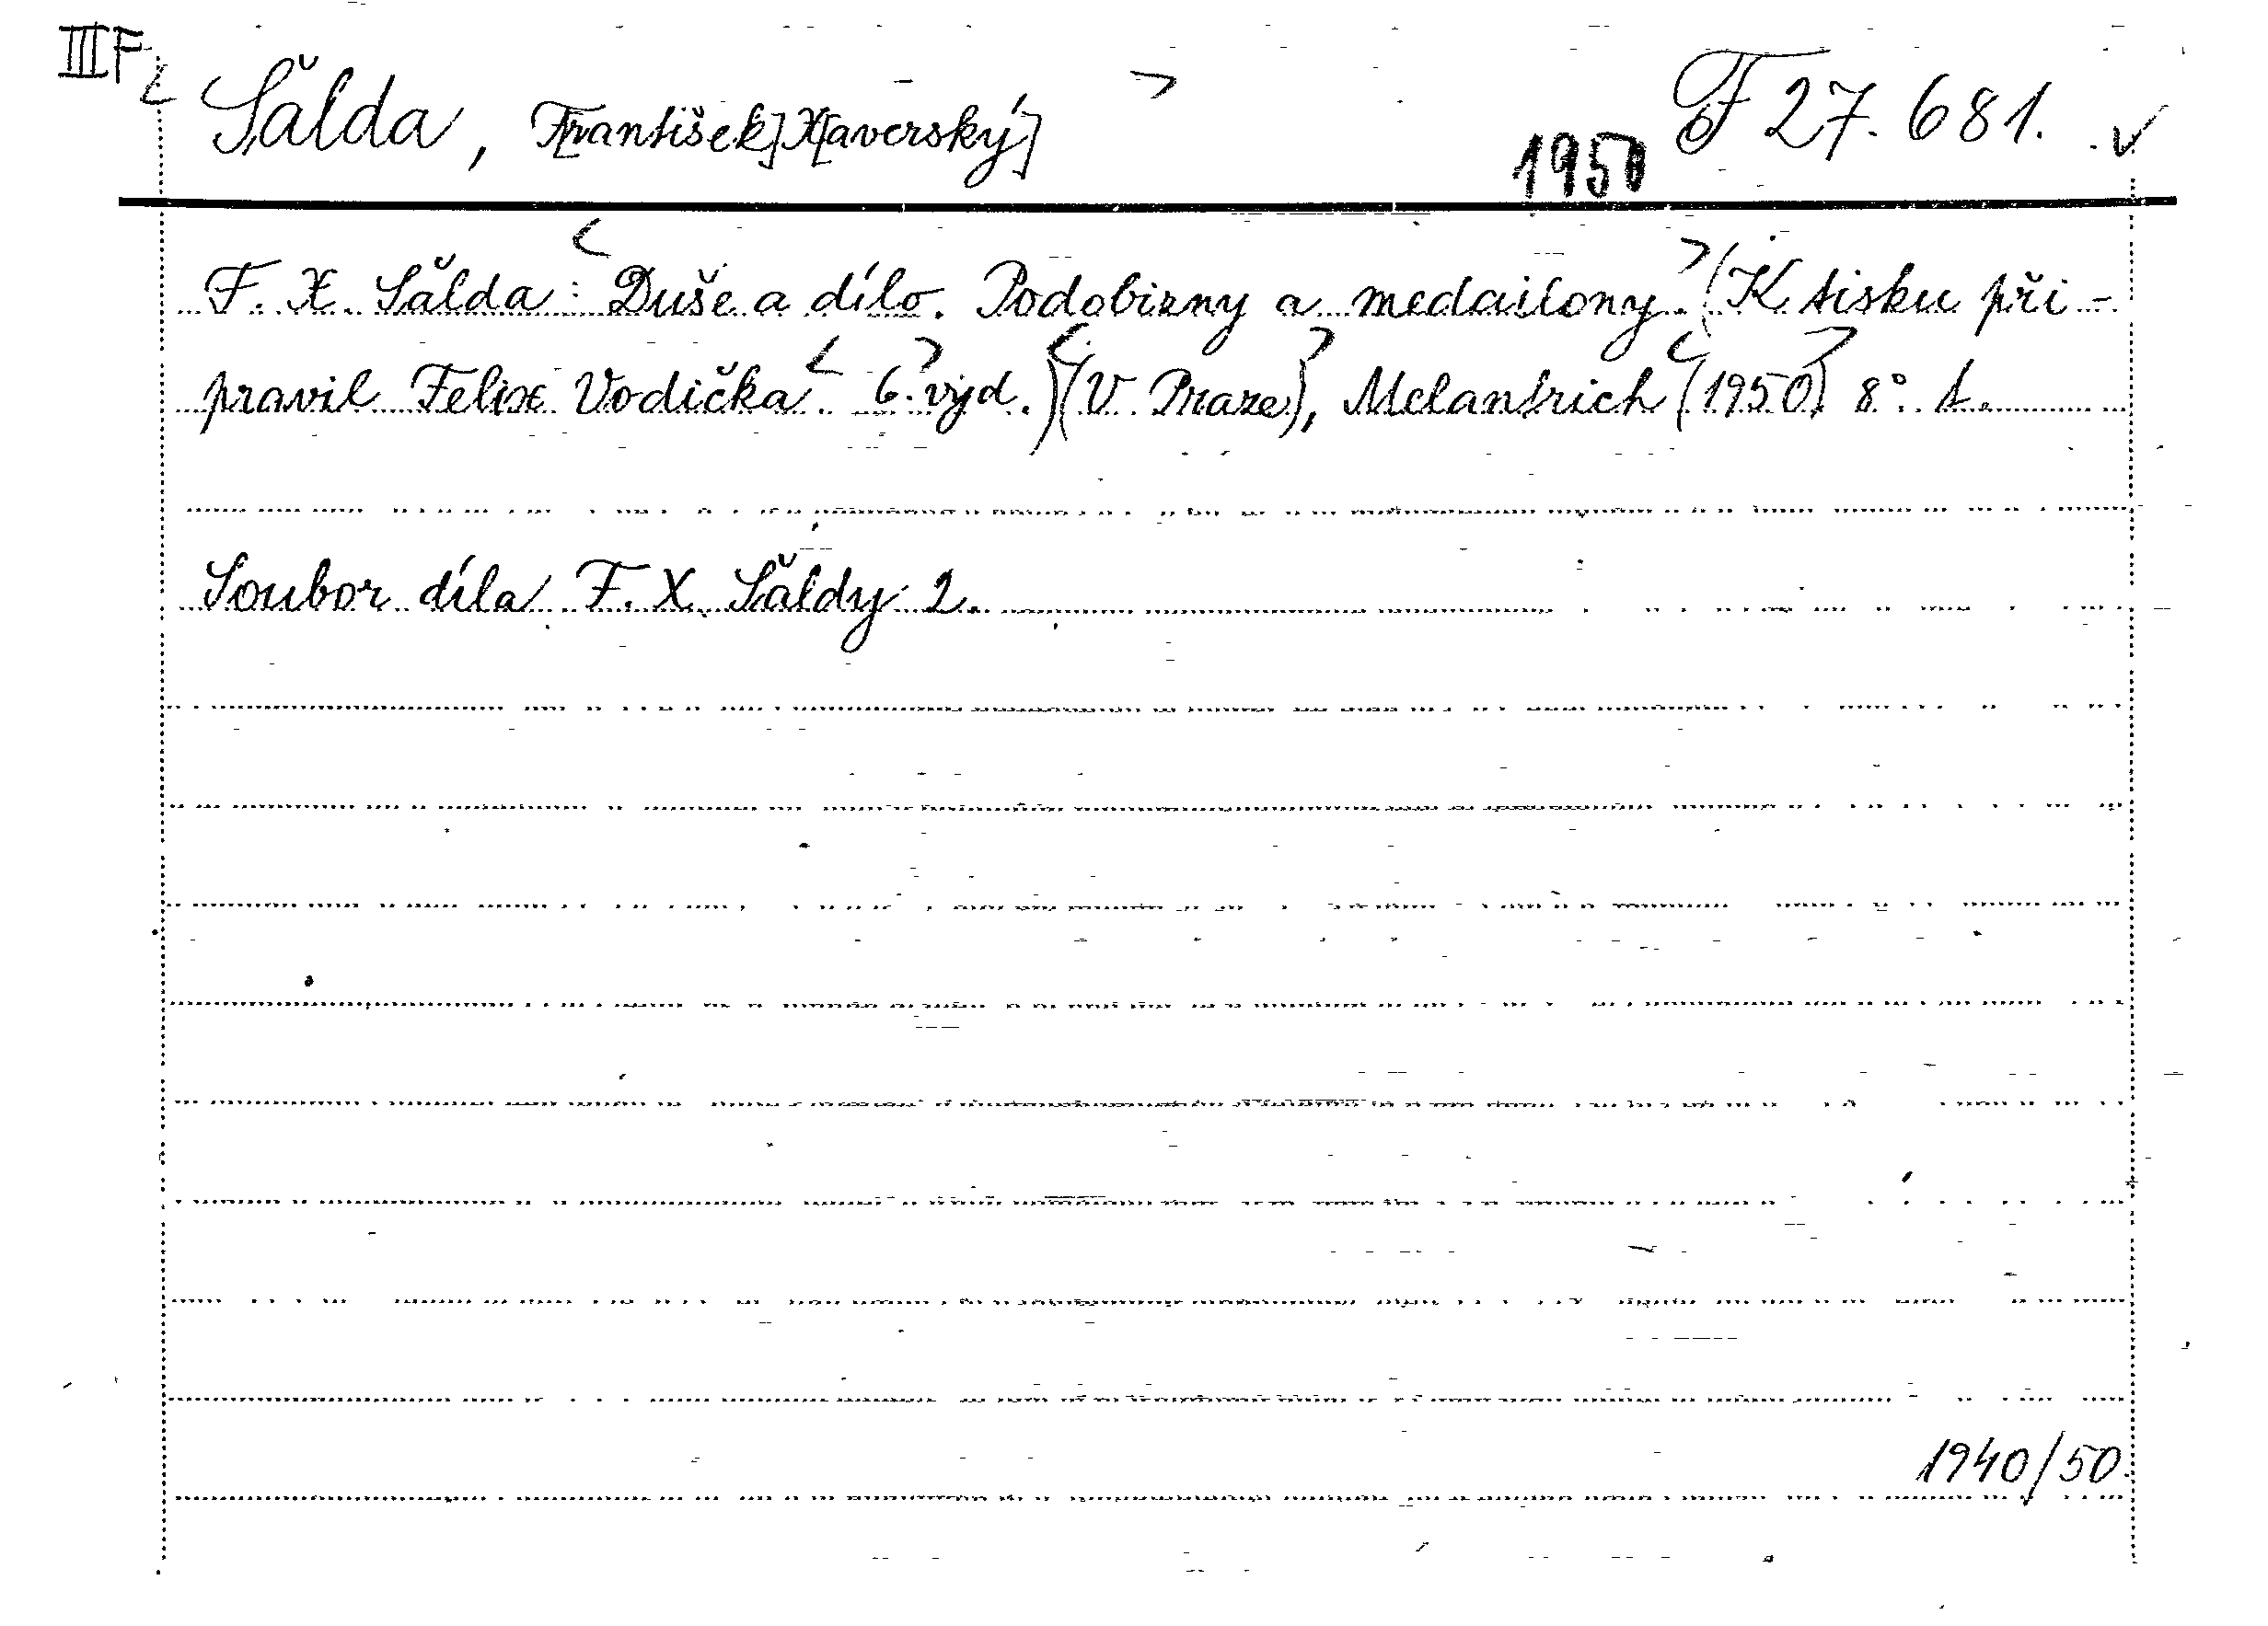 III F
Šálda, F[rantišek] X[averský]
1950
F 27.681. ✓
F. X. Šálda: Duše a dílo. Podobizny a medailony. (K tisku při-
pravil Felix Vodička. 6. vyd.) (V Praze), Melantrich (1950) 8°. s.
Soubor díla F. X. Šaldy 2.
1940/50.